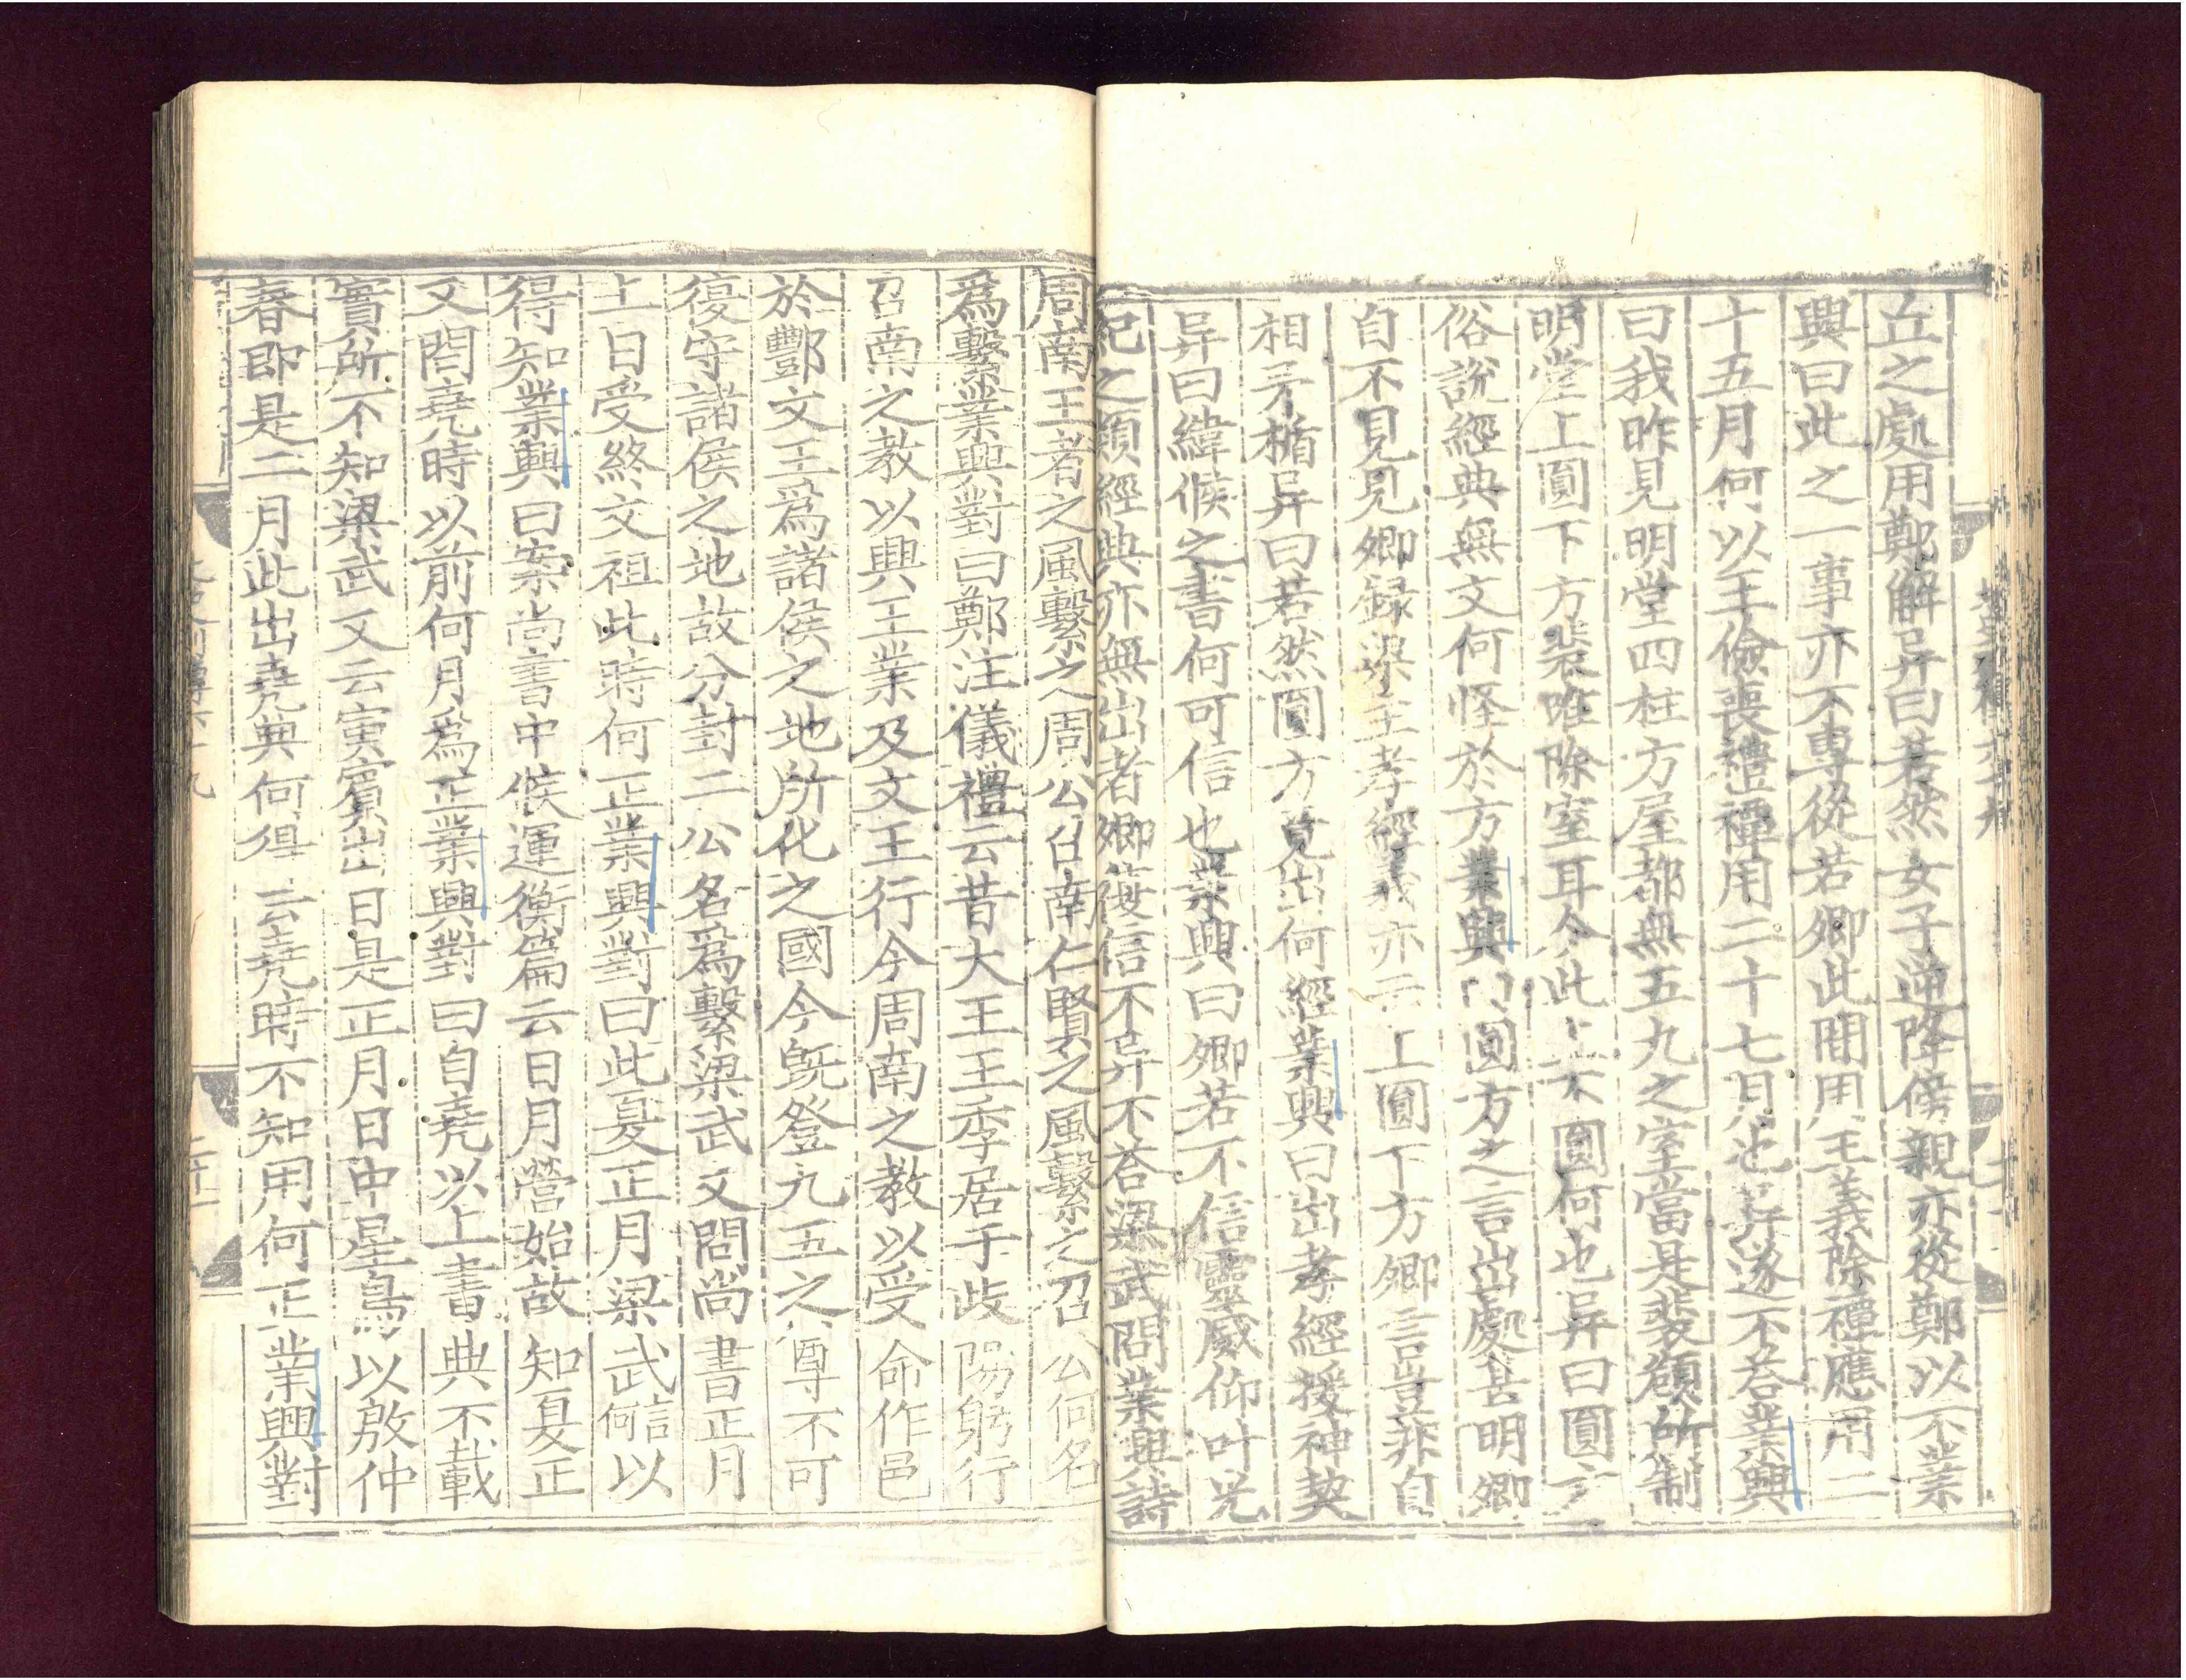 丘之處用鄭解异曰若然女子逆降傍親亦從鄭以不業
興曰此之一事亦不專從若卿此間用王義除禫應用二
十五月何以王儉喪禮禫用二十七月也异遂不荅業興
曰我昨見明堂四柱方屋都無五九之室當是裴頠所制
明堂上圓下方裴唯除室耳今此上不圓何也异曰圓方
俗說經典無文何怪於方業興曰圓方之言出處甚明卿
自不見見卿録梁主孝經義亦云上圓下方卿言豈非自
相矛楯异曰若然圓方竟出何經業興曰出孝經援神契
异曰緯候之書何可信也業興曰卿若不信靈威仰叶光
紀之類經典亦無出者卿復信不异不荅梁武問業興詩
周南王者之風繫之周公召南仁賢之風繫之召公何名
爲繫業興對曰鄭注儀禮云昔大王王季居于歧陽躬行
召南之教以興王業及文王行今周南之教以受命作邑
於酆文王爲諸侯之地所化之國今旣登九五之尊不可
復守諸侯之地故分封二公名爲繫梁武又問尚書正月
上日受終文祖此時何正業興對曰此夏正月梁武信何以
得知業興曰案尚書中候運衡篇云日月營始故知夏正
又問堯時以前何月爲正業興對曰自堯以上書典不載
實所不知梁武又云寅賓出日是正月日中星鳥以殷仲
春即是二月此出堯典何得云堯時不知用何正業興對